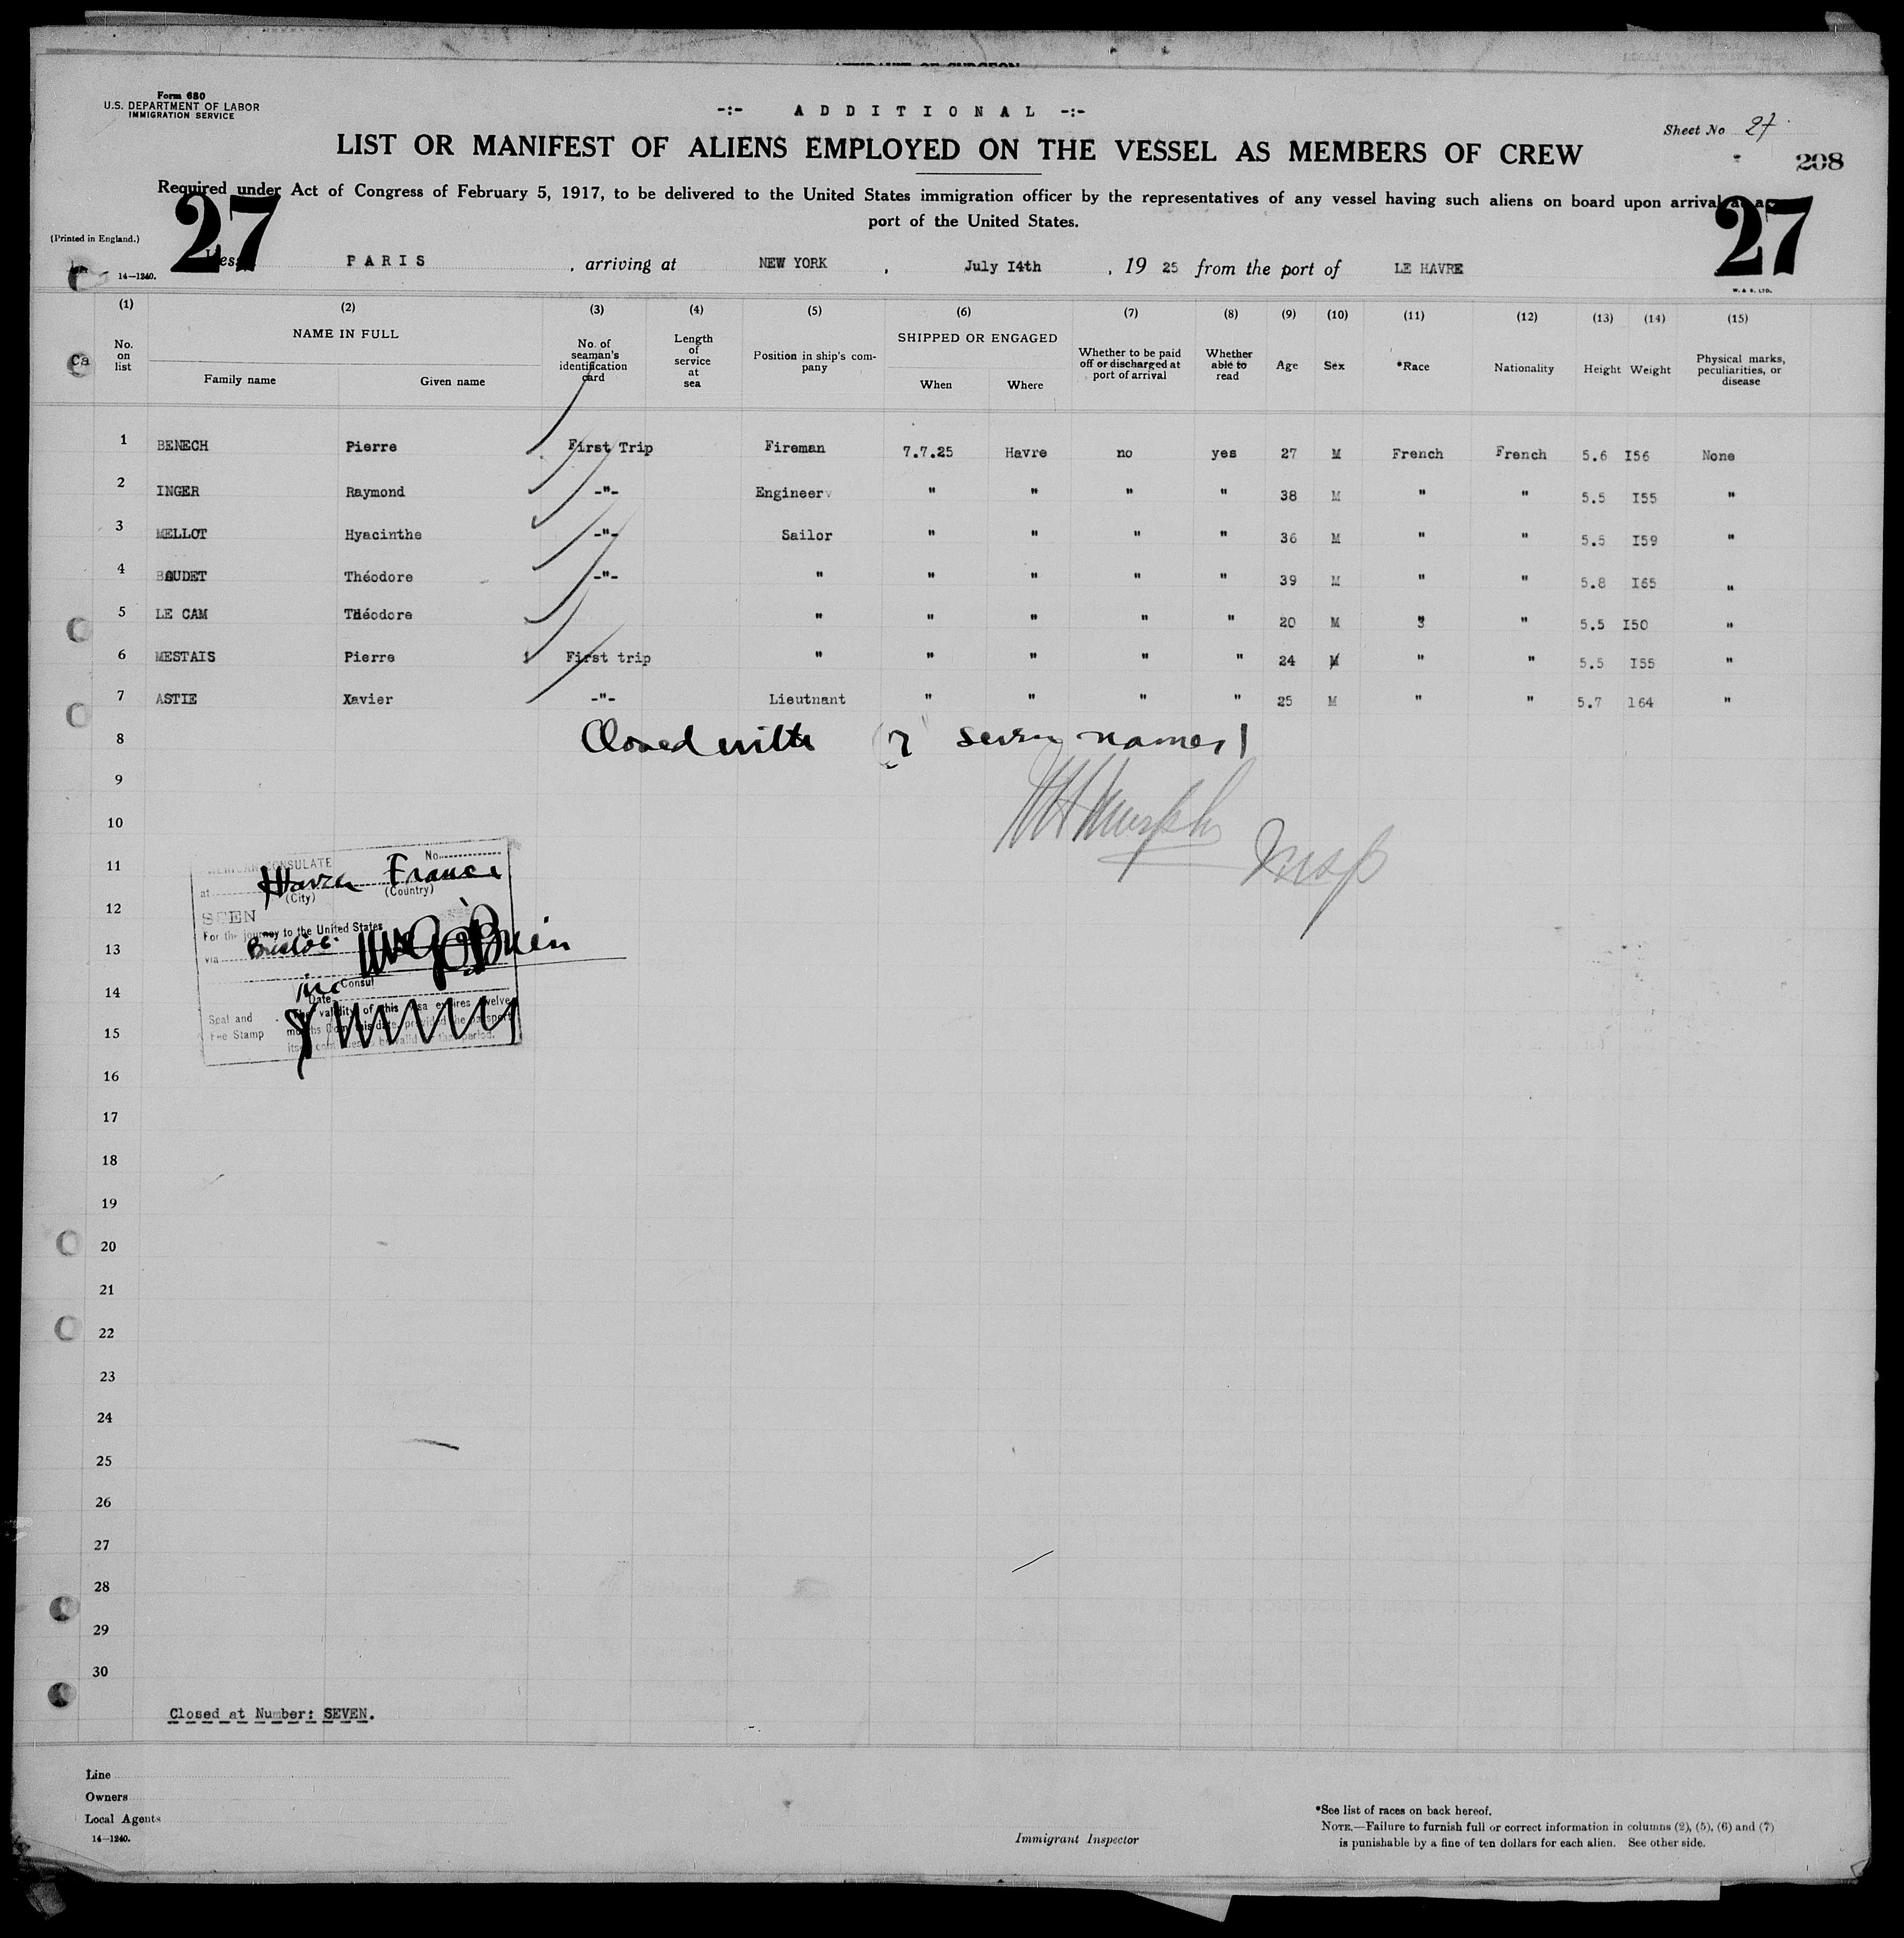 Form 680
U.S. DEPARTMENT OF LABOR
IMMIGRATION SERVICE
-:- ADDITIONAL -:-
Sheet No 27
LIST OR MANIFEST OF ALIENS EMPLOYED ON THE VESSEL AS MEMBERS OF CREW
208
Required under Act of Congress of February 5, 1917, to be delivered to the United States immigration officer by the representatives of any vessel having such aliens on board upon arrival at a
port of the United States.
27 27
(Printed in England.)
14—1240.
Vessel PARIS, arriving at NEW YORK, July I4th, 19 25 from the port of LE HAVRE
W. & S. LTD.
(1) (2) (3) (4) (5) (6) (7) (8) (9) (10) (11) (12) (13) (14) (15)
No. on list NAME IN FULL Family name Given name No. of seaman's identification card Length of service at sea Position in ship's company SHIPPED OR ENGAGED When Where Whether to be paid off or discharged at port of arrival Whether able to read Age Sex *Race Nationality Height Weight Physical marks, peculiarities, or disease
1 BENECH Pierre First Trip Fireman 7.7.25 Havre no yes 27 M French French 5.6 I56 None
2 INGER Raymond -"- Engineer " " " " 38 M " " 5.5 I55 "
3 MELLOT Hyacinthe -"- Sailor " " " " 36 M " " 5.5 I59 "
4 BAUDET Théodore -"- " " " " " 39 M " " 5.8 I65 "
5 LE CAM Théodore " " " " " 20 M " " 5.5 I50 "
6 MESTAIS Pierre First trip " " " " " 24 M " " 5.5 I55 "
7 ASTIE Xavier -"- Lieutnant " " " " 25 M " " 5.7 164 "
8 Closed with (7 seven names)
9
10
Murphy Insp
11
12
13
14
15
16
17
18
19
20
21
22
23
24
25
26
27
28
29
30
CONSULATE No.
at Havre France
(City) (Country)
SEEN
For the journey to the United States
via O'Brien
Consul
Date
Seal and Fee Stamp
The validity of this visa expires twelve
months from this date, provided the passport
itself continues to be valid for that period.
Closed at Number: SEVEN.
Line
Owners
Local Agents
14—1240.
Immigrant Inspector
*See list of races on back hereof.
NOTE.—Failure to furnish full or correct information in columns (2), (5), (6) and (7)
is punishable by a fine of ten dollars for each alien. See other side.